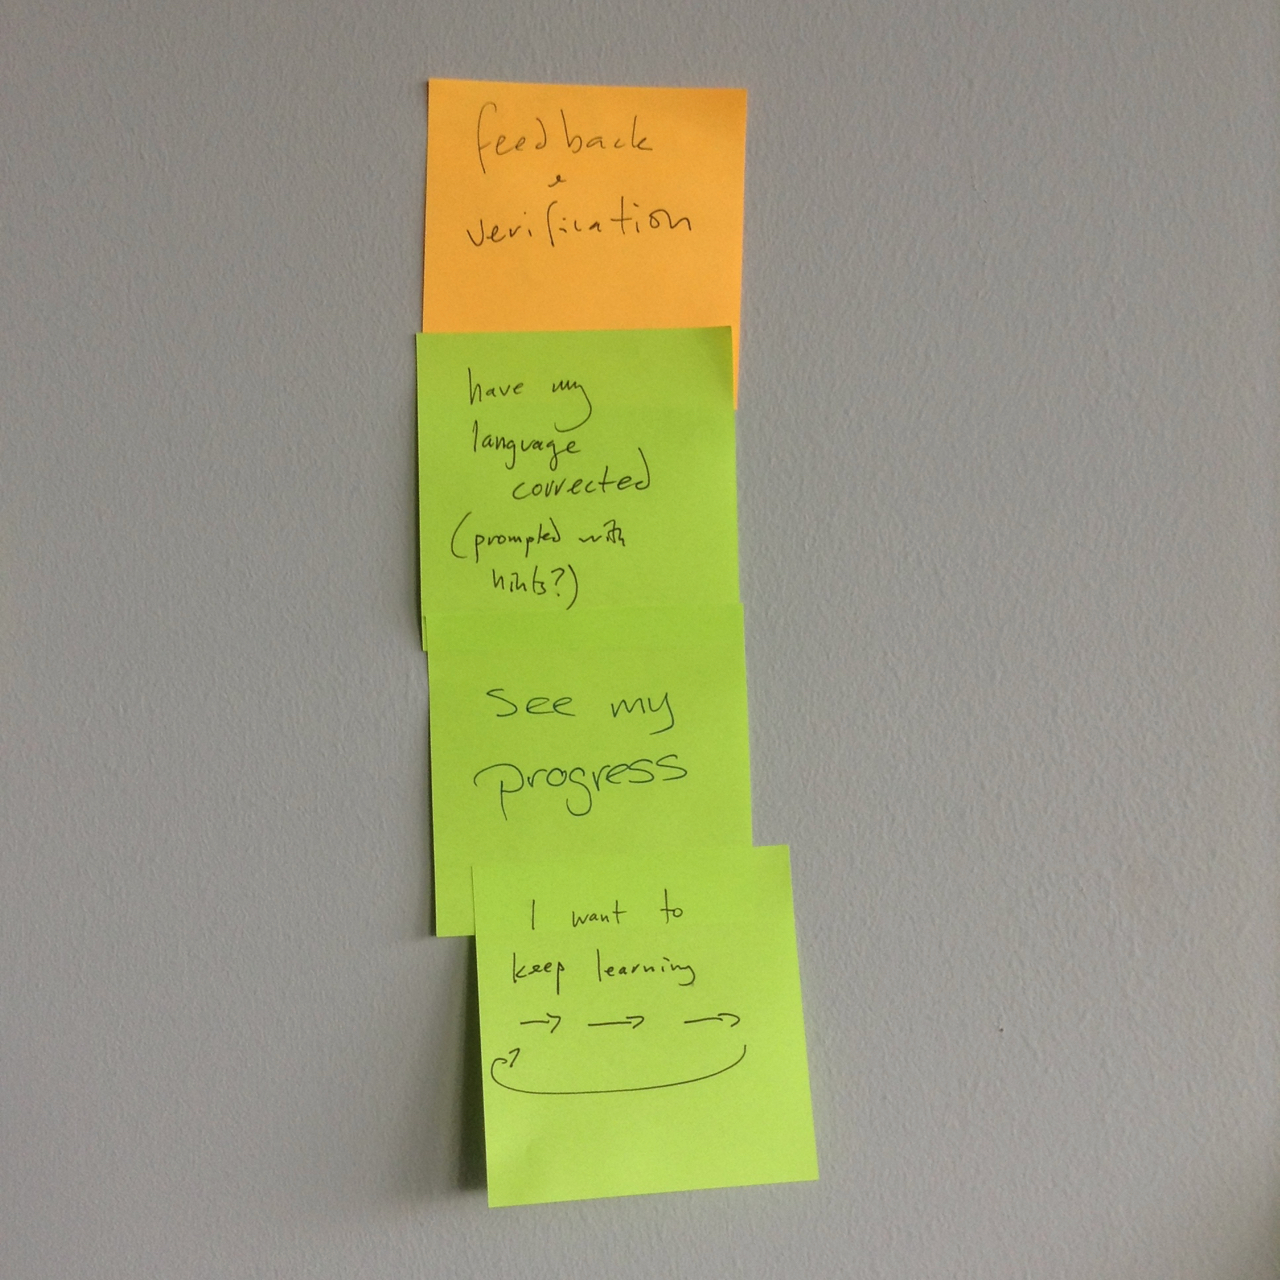 feedback
&
verification
have my
language
corrected
(prompted with
hints?)
see my
progress
I want to
keep learning
→ → →